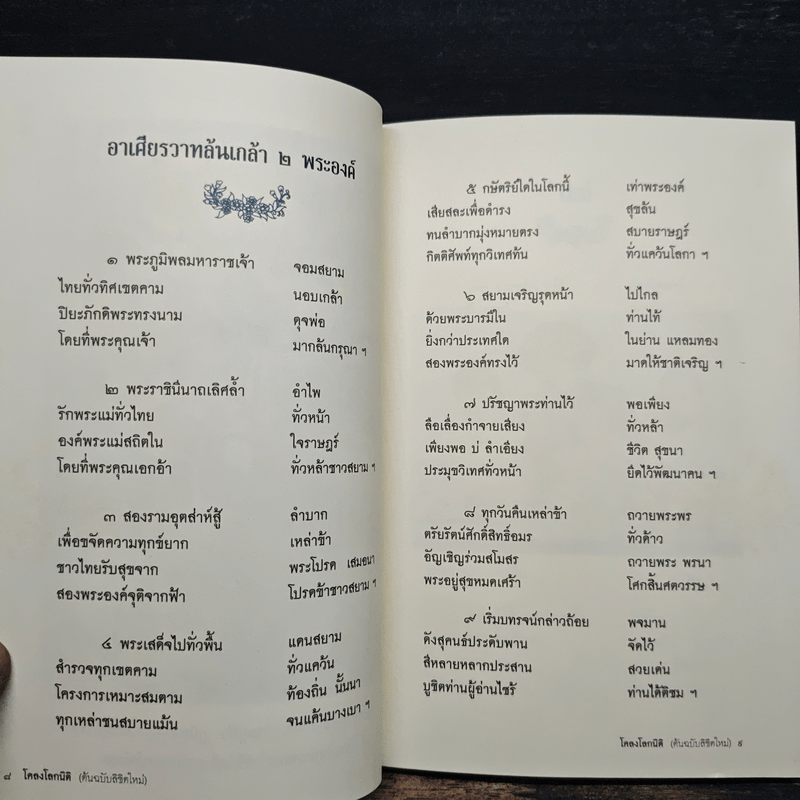 อาเศียรวาทล้นเกล้า ๒ พระองค์
๑ พระภูมิพลมหาราชเจ้า จอมสยาม
ไทยทั่วทิศเขตคาม นอบเกล้า
ปิยะภักดิพระทรงนาม ดุจพ่อ
โดยที่พระคุณเจ้า มากล้นกรุณา ฯ
๒ พระราชินีนาถเลิศล้ำ อำไพ
รักพระแม่ทั่วไทย ทั่วหน้า
องค์พระแม่สถิตใน ใจราษฎร์
โดยที่พระคุณเอกอ้า ทั่วหล้าชาวสยาม ฯ
๓ สองรามอุตส่าห์สู้ ลำบาก
เพื่อขจัดความทุกข์ยาก เหล่าข้า
ชาวไทยรับสุขจาก พระโปรด เสมอนา
สองพระองค์จุติจากฟ้า โปรดข้าชาวสยาม ฯ
๔ พระเสด็จไปทั่วพื้น แดนสยาม
สำรวจทุกเขตคาม ทั่วแคว้น
โครงการเหมาะสมตาม ท้องถิ่น นั้นนา
ทุกเหล่าชนสบายแม้น จนแค้นบางเบา ฯ
๘ โคลงโลกนิติ (ต้นฉบับลิขิตใหม่)
๕ กษัตริย์ใดในโลกนี้ เท่าพระองค์
เสียสละเพื่อดำรง สุขล้น
ทนลำบากมุ่งหมายตรง สบายราษฎร์
กิตติศัพท์ทุกวิเทศท้น ทั่วแคว้นโลกา ฯ
๖ สยามเจริญรุดหน้า ไปไกล
ด้วยพระบารมีใน ท่านไท้
ยิ่งกว่าประเทศใด ในย่าน แหลมทอง
สองพระองค์ทรงไว้ มาดให้ชาติเจริญ ฯ
๗ ปรัชญาพระท่านไว้ พอเพียง
ลือเลื่องกำจายเสียง ทั่วหล้า
เพียงพอ บ่ ลำเอียง ชีวิต สุขนา
ประมุขวิเทศทั่วหน้า ยึดไว้พัฒนาคน ฯ
๘ ทุกวันคืนเหล่าข้า ถวายพระพร
ตรัยรัตน์ศักดิ์สิทธิ์อมร ทั่วด้าว
อัญเชิญร่วมสโมสร ถวายพระ พรนา
พระอยู่สุขหมดเศร้า โศกสิ้นศตวรรษ ฯ
๙ เริ่มบทรจน์กล่าวถ้อย พจมาน
ดังสุคนธ์ประดับพาน จัดไว้
สีหลายหลากประสาน สวยเด่น
บูชิตท่านผู้อ่านไซร้ ท่านได้ติชม ฯ
โคลงโลกนิติ (ต้นฉบับลิขิตใหม่) ๙